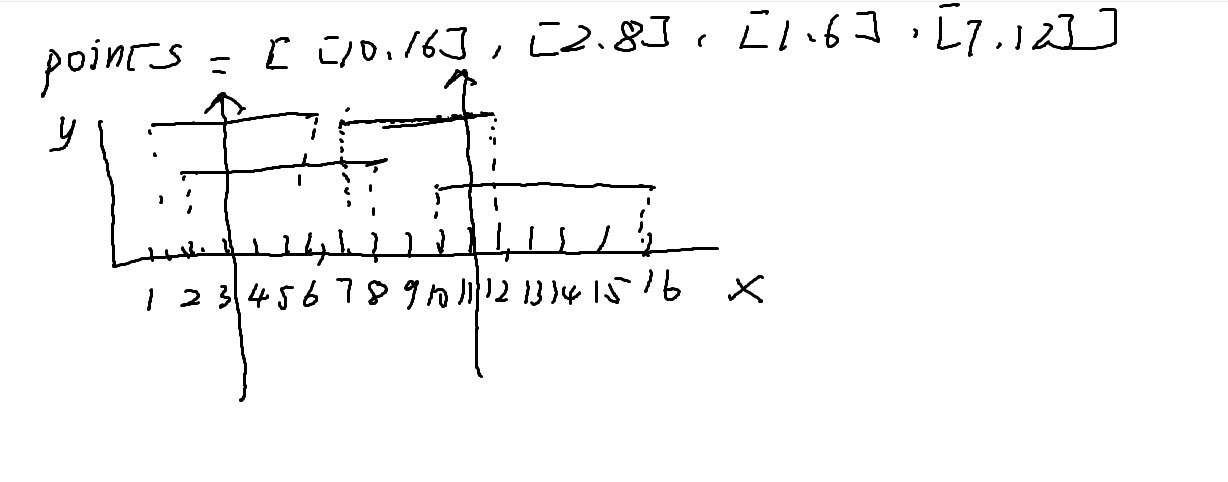 points = [ [10.16], [2.8], [1.6], [7.12]]
y
1 2 3 4 5 6 7 8 9 10 11 12 13 14 15 16 x